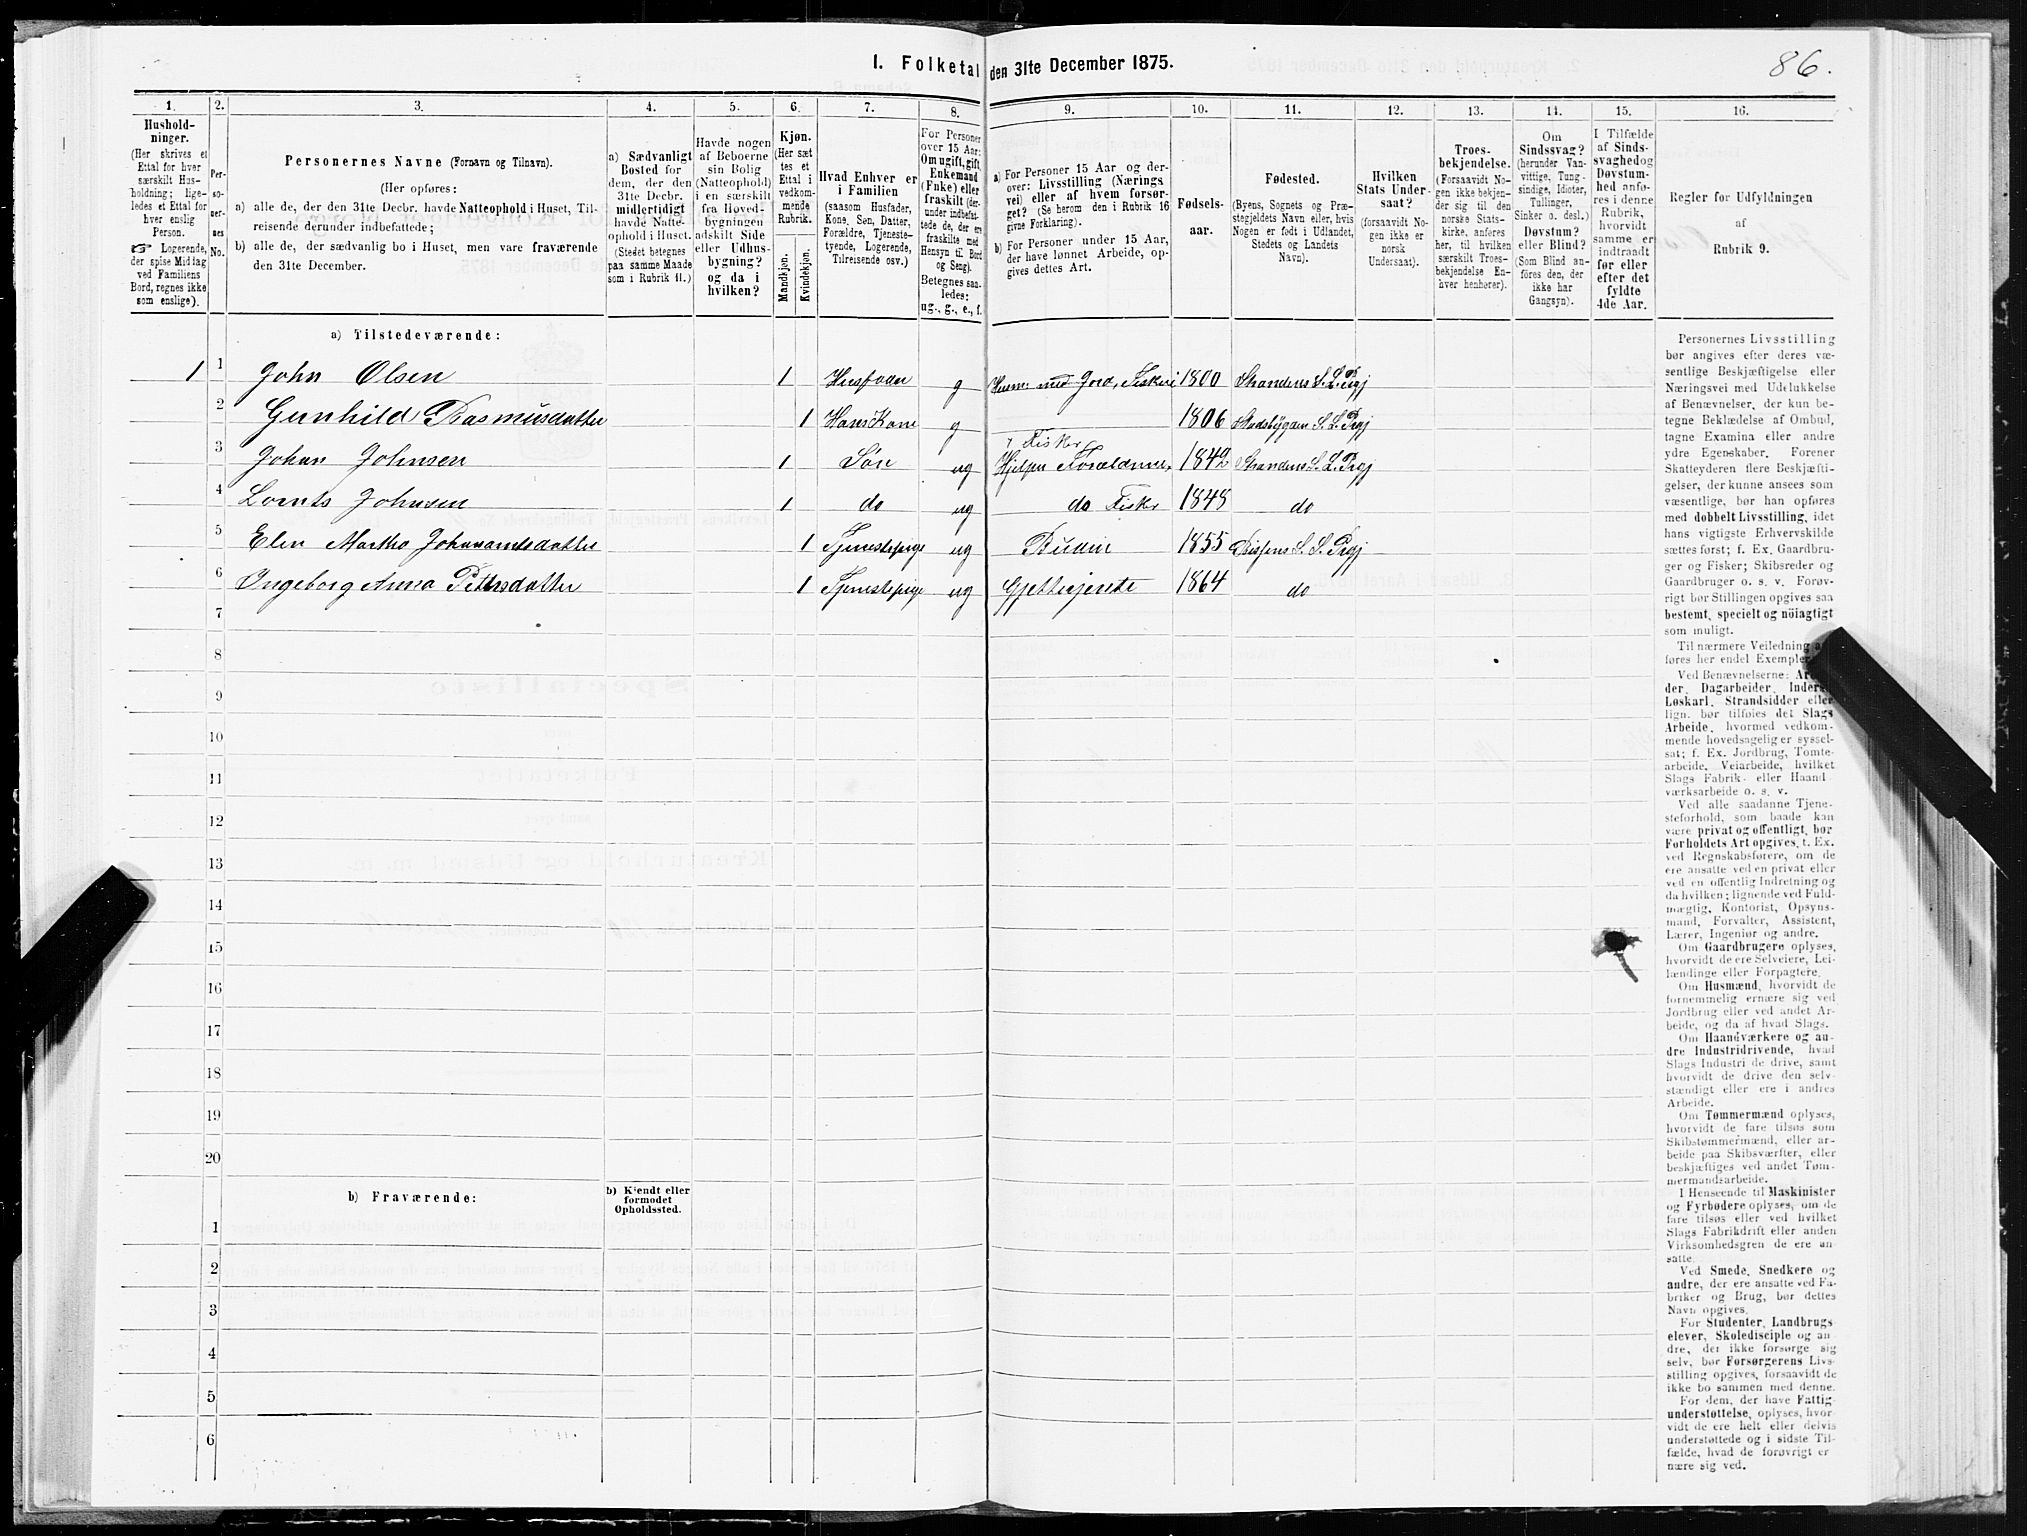 I. Folketal den 31te December 1875.
86.
1.
2.
3.
4.
5.
6.
7.
8.
9.
10.
11.
12.
13.
14.
15.
16.
Hushold-
ninger.
(Her skrives et
Ettal for hver
særskilt Hus-
holdning; lige-
ledes et Ettal for
hver enslig
Person.
☞ Logerende,
der spise Middag
ved Familiens
Bord, regnes ikke
som enslige).
Per-
so-
ner-
nes
No.
Personernes Navne (Fornavn og Tilnavn).
(Her opføres:
a) alle de, der den 31te Decbr. havde Natteophold i Huset, Til-
reisende derunder indbefattede;
b) alle de, der sædvanlig bo i Huset, men vare fraværende
den 31te December.
a) Sædvanligt
Bosted for
dem, der den
31te Decbr.
midlertidigt
havde Natte-
ophold i Huset.
(Stedet betegnes
paa samme Maade
som i Rubrik 11.)
Havde nogen
af Beboerne
sin Bolig
(Natteophold)
i en særskilt
fra Hoved-
bygningen
adskilt Side
eller Udhus-
bygning?
og da i
hvilken?
Kjøn.
(Her sæt
tes et
Ettal i
vedkom-
mende
Rubrik.
Mandkjøn.
Kvindekjøn.
Hvad Enhver er
i Familien
(saasom Husfader,
Kone, Søn, Datter,
Forældre, Tjeneste-
tyende, Logerende,
Tilreisende osv.)
For Personer
over 15 Aar:
Om ugift, gift,
Enkemand
(Enke) eller
fraskilt (der-
under indbefat-
tede de, der ere
fraskilte med
Hensyn til Bord
og Seng).
Betegnes saa-
ledes:
ug., g., e., f.
a) For Personer 15 Aar og der-
over: Livsstilling (Nærings
vei) eller af hvem forsør-
get? (Se herom den i Rubrik 16
givne Forklaring).
b) For Personer under 15 Aar,
der have lønnet Arbeide, op-
gives dettes Art.
Fødsels-
aar.
Fødested.
(Byens, Sognets og Præ-
stegjeldets Navn eller, hvis
Nogen er født i Udlandet,
Stedets og Landets
Navn).
Hvilken
Stats Under-
saat?
(forsaavidt No-
gen ikke er
norsk
Undersaat).
Troes-
bekjendelse.
(Forsaavidt No-
gen ikke bekjen-
der sig til den
norske Stats-
kirke, anføres
her, til hvilken
særskilt Troes-
bekjendelse En-
hver henhører).
Om
Sindssvag?
(herunder Van-
vittige, Tung-
sindige, Idioter,
Tullinger,
Sinker o. desl.)
Døvstum?
eller Blind?
(Som Blind an-
føres den, der
ikke har
Gangsyn).
I Tilfælde
af Sinds-
svaghed og
Døvstum-
hed anfø-
res i denne
Rubrik,
hvorvidt
samme er
indtraadt
før eller
efter det
fyldte
4de Aar.
Regler for Udfyldningen
af
Rubrik 9.
a) Tilstedeværende:
1 1 John Olsen 1 Husfader g Husm: med Jord, Fiskeri 1800 Strandens S. L. Prgj
2 Gunhild Rasmusdatter 1 Hans Kone g 1806 Stadsbygden S. L. Prgj
Fisker
3 Johan Johnsen 1 Søn ug Hjelper Forældrene, 1842 Strandens S. L. Prgj
4 Lornts Johnsen 1 do ug do Fisker 1848 do
5 Elen Martha Johanamdsdatter 1 Tjenestepige ug Budeie 1855 Rissens S. S. Prgj
6 Ingeborg Anna Petersdatter 1 Tjenestepige ug Gjetterjente 1864 do
7
8
9
10
11
12
13
14
15
16
17
18
19
20
b) Fraværende:
b) Kjendt eller
formodet
Opholdssted.
1
2
3
4
5
6
Personernes Livsstilling
bør angives efter deres væ-
sentlige Beskjæftigelse eller
Næringsvei med Udelukkelse
af Benævnelser, der kun be-
tegne Beklædelse af Ombud,
tagne Examina eller andre
ydre Egenskaber. Forener
Skatteyderen flere Beskjæfti-
gelser, der kunne ansees som
væsentlige, bør han opføres
med dobbelt Livsstilling, idet
hans vigtigste Erhvervskilde
sættes først; f. Ex. Gaardbru-
ger og Fisker; Skibsreder og
Gaardbruger o. s. v. Forøv-
rigt bør Stillingen opgives saa
bestemt, specielt og nöiagtigt
som muligt.
Til nærmere Veiledning an-
føres her endel Exempler:
Ved Benævnelserne: Arbei-
der, Dagarbeider, Inderst,
Løskarl, Strandsidder eller
lign. bør tilføies det Slags
Arbeide, hvormed vedkom-
mende hovedsagelig er syssel-
sat; f. Ex. Jordbrug, Tomte-
arbeide, Veiarbeide, hvilket
Slags Fabrik- eller Haand-
værksarbeide o. s. v.
Ved alle saadanne Tjene-
steforhold, som baade kan
være privat og offentligt, bør
Forholdets Art opgives, t. Ex.
ved Regnskabsførere, om de
ere ansatte ved en privat eller
ved en offentlig Indretning og
da hvilken; lignende ved Fuld-
mægtig, Kontorist, Opsyns-
mand, Forvalter, Assistent,
Lærer, Ingeniør og andre.
Om Gaardbrugere oplyses,
hvorvidt de ere Selveiere, Lei-
lændinge eller Forpagtere.
Om Husmænd, hvorvidt de
fornemmelig ernære sig ved
Jordbrug eller ved andet Ar-
beide, og da af hvad Slags.
Om Haandværkere og an-
dre Industridrivende, hvad
Slags Industri de drive, samt
hvorvidt de drive den selv-
stændigt eller ere i andres
Arbeide.
Om Tømmermænd oplyses,
hvorvidt de fare tilsøs som
Skibstømmermænd, eller ar-
beide paa Skibsværfter, eller
beskjæftiges ved andet Tøm-
mermandsarbeide.
I Henseende til Maskinister
og Fyrbødere oplyses, om de
fare tilsøs eller ved hvilket
Slags Fabrikdrift eller anden
Virksomhedsgren de ere an-
satte.
Ved Smede, Snedkere og
andre, der ere ansatte ved Fa-
briker og Brug, bør dettes
Navn opgives.
For Studenter, Landbrugs
elever, Skoledisciple og an-
dre, der ikke forsørge sig
selv, bør Forsørgerens Livs-
stilling opgives, forsaavidt de
ikke bo sammen med denne.
For dem, der have Fattig-
understøttelse, oplyses, hvor-
vidt de ere helt eller delvis
understøttede og i sidste Til-
fælde, hvad de forøvrigt er
nære sig ved.